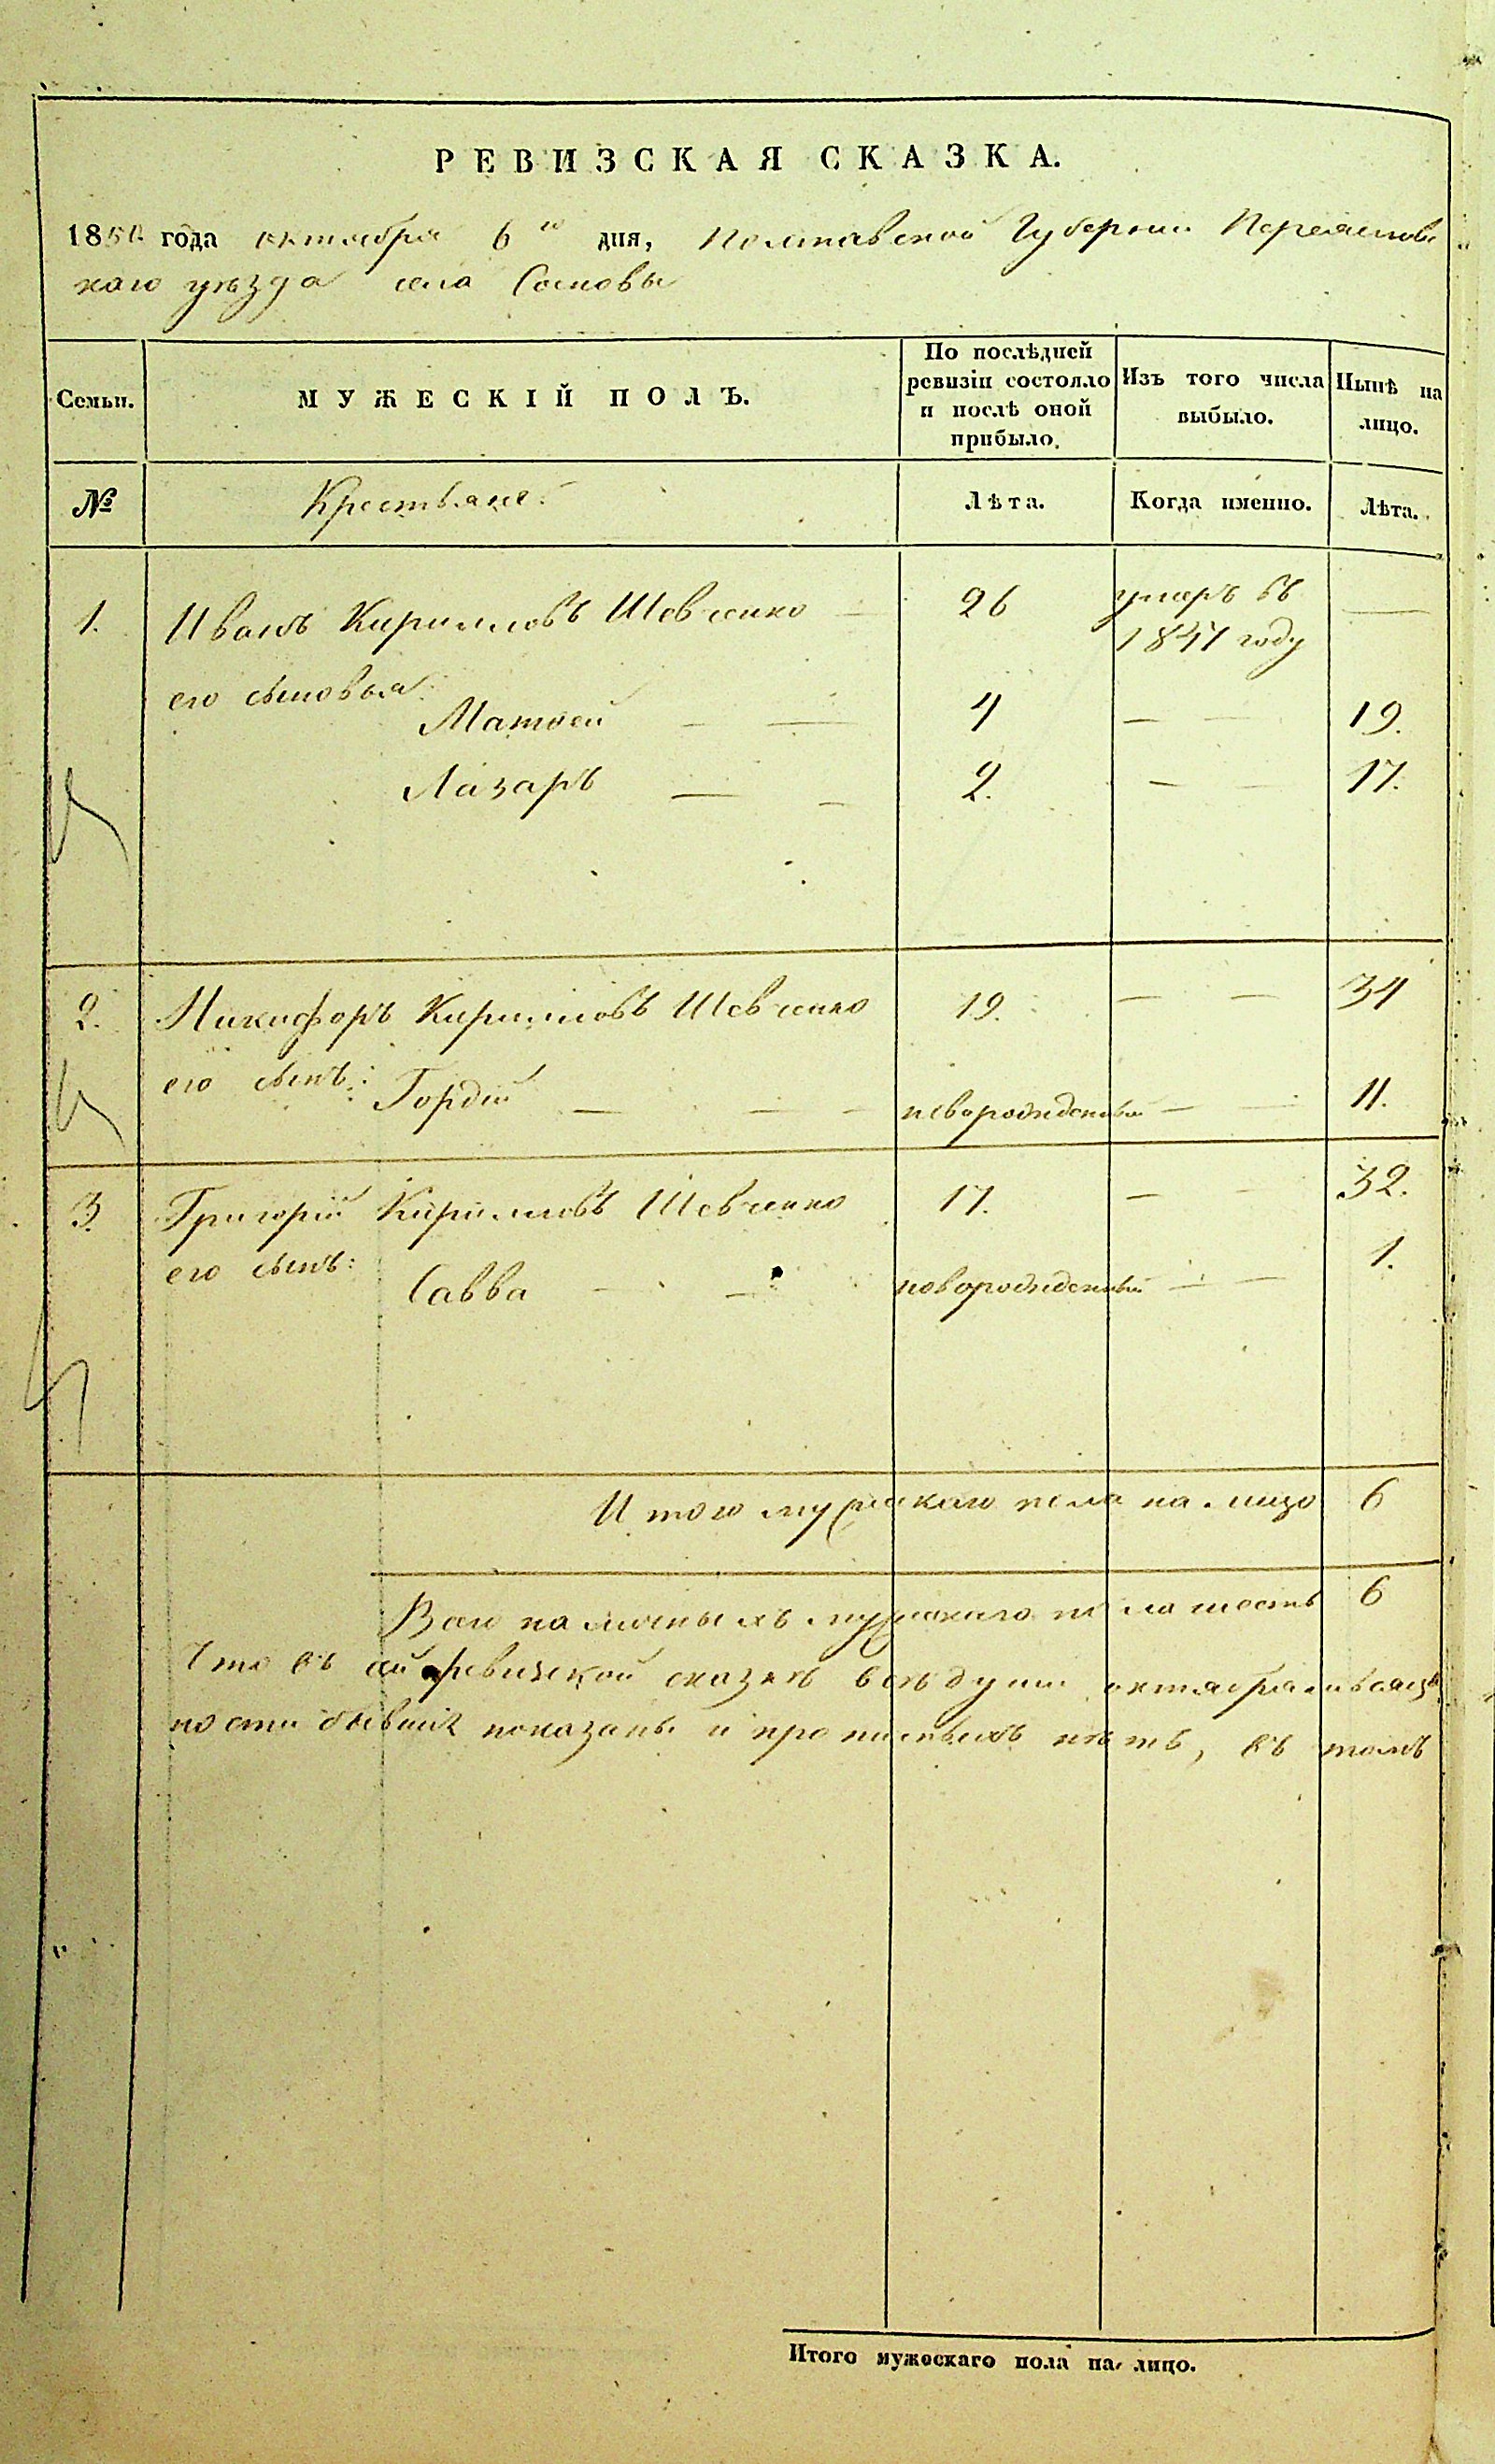 РЕВИЗСКАЯ СКАЗКА.
1850 года октября 6го дня, Полтавской Губернии Переяслов
скаго уезда села Сосновы
Семьи.
МУЖЕСКІЙ ПОЛЪ.
По послѣдней ревизіи состояло и послѣ оной прибыло.
Изъ того числа выбыло.
Нынѣ на лицо.
№ Крестьяне: Лѣта. Когда именно. Лѣта.
1. Иванъ Кирилловъ Шевченко — 26 умеръ въ —
1847 году
его сыновья:
Матвей — — 4 — — 19.
Лазаръ — — 2. — — 17.
2. Никифоръ Кирилловъ Шевченко 19. — — 34
его сынъ: Гордій — — — новорожденный — — 11.
3. Григорій Кирилловъ Шевченко 17. — — 32.
его сынъ: Савва — — новорожденный — — 1.
Итого мужескаго пола на лицо 6
Всего наличныхъ мужескаго пола шесть 6
Что въ сей ревизской сказкѣ всѣ души
бывшіе показаны и прописныхъ нѣтъ, въ томъ
Итого мужескаго пола на лицо.